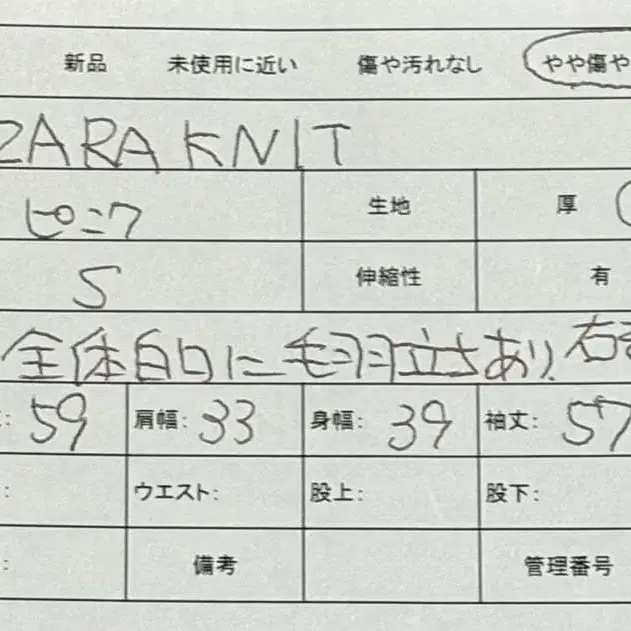 新品 未使用に近い 傷や汚れなし やや傷や
ZARA KNIT
ピンク 生地 厚
S 伸縮性 有
全体的に毛羽立ちあり、右
: 59 肩幅: 33 身幅: 39 袖丈: 57
: ウエスト: 股上: 股下:
: 備考 管理番号